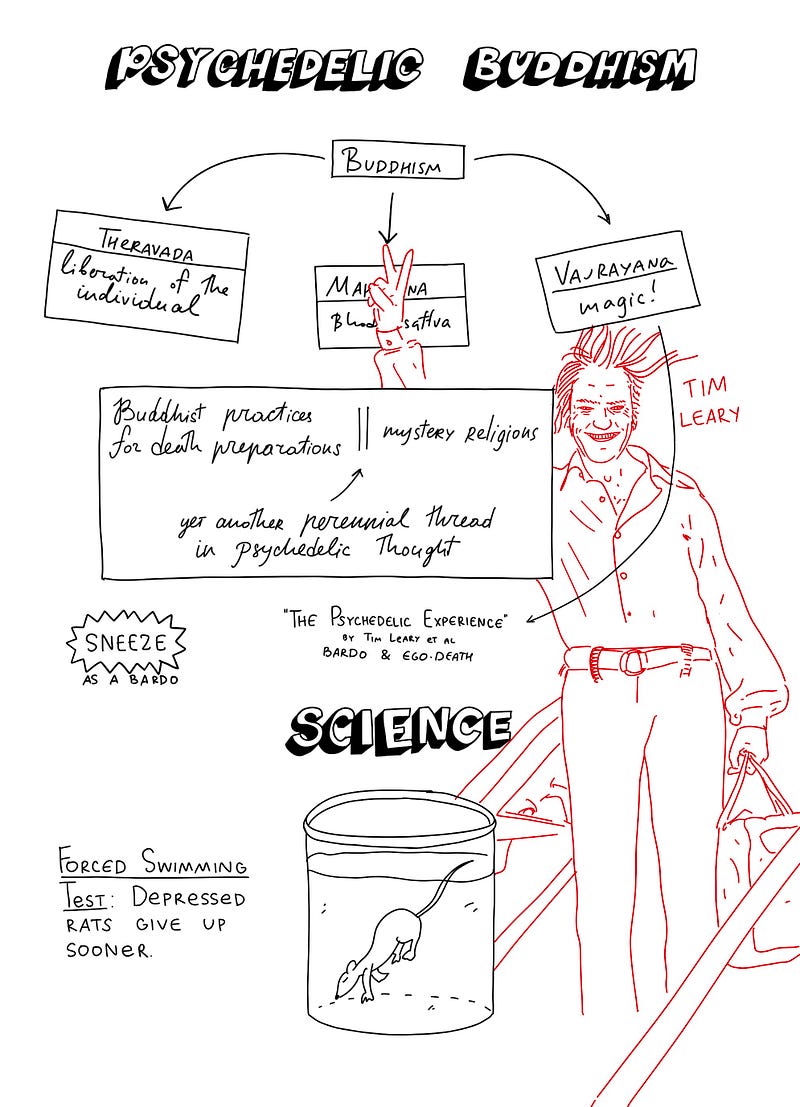 PSYCHEDELIC BUDDHISM
BUDDHISM
THERAVADA
liberation of the
individual
VAJRAYANA
magic!
TIM
LEARY
Buddhist practices
for death preparations
||
mystery religions
yet another perennial thread
in psychedelic thought
"THE PSYCHEDELIC EXPERIENCE"
BY TIM LEARY ET AL
BARDO & EGO-DEATH
SNEEZE
AS A BARDO
SCIENCE
FORCED SWIMMING
TEST: DEPRESSED
RATS GIVE UP
SOONER.